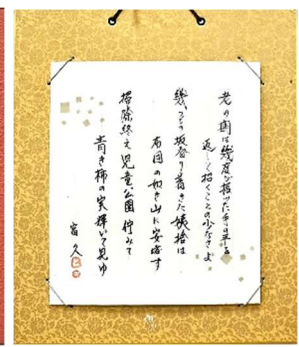 老の国は幾度が招つた手の平を
返して招くことの少なさよ
幾つもの坂登り着きた姨捨は
布団の如き山に安堵す
掃除終え児童公園佇みて
青き柿の実輝いて見ゆ
富久